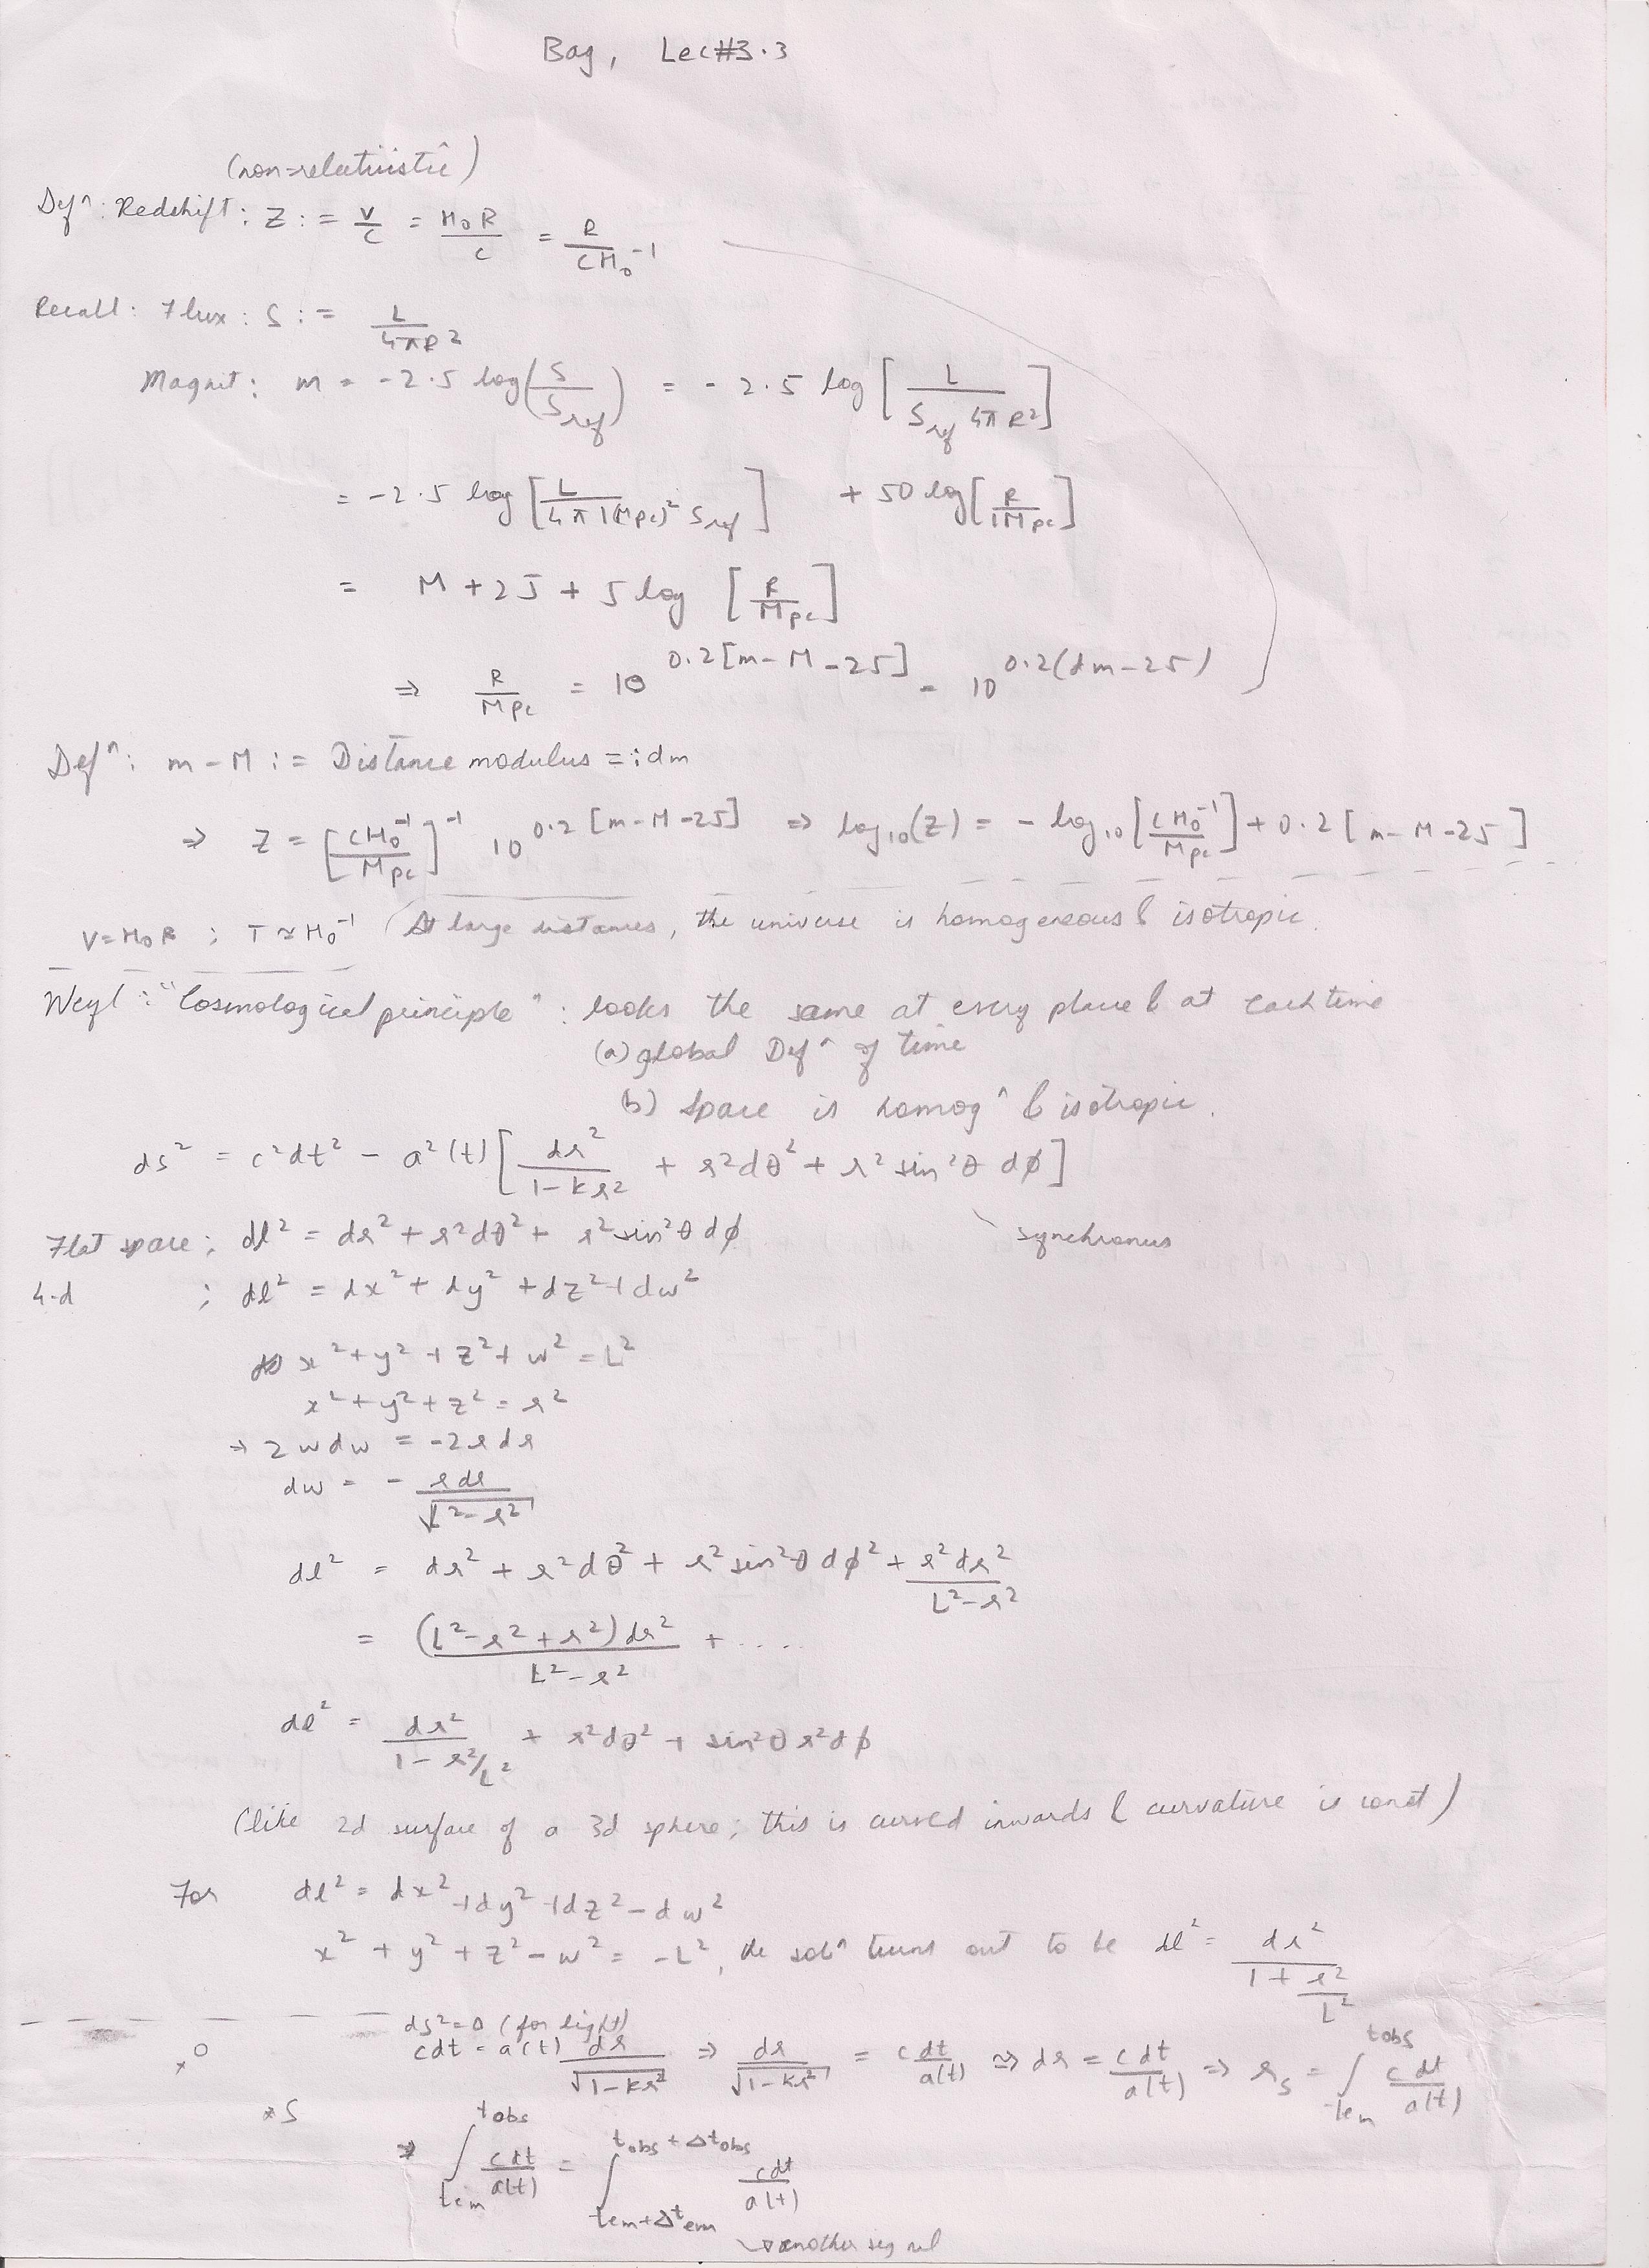 Bag, Lec#3.3
(non-relativistic)
Defⁿ: Redshift: Z := V/C = H₀R/C = R/CH₀⁻¹
Recall: Flux: S := L/4πR²
Magnit: m = -2.5 log(S/S_ref) = -2.5 log[L/S_ref 4πR²]
= -2.5 log[L/4π1(Mpc)² S_ref] + 50 log[R/1Mpc]
= M + 25 + 5 log [R/Mpc]
⇒ R/Mpc = 10^0.2[m-M-25] = 10^0.2(dm-25)
Defⁿ: m-M := Distance modulus =: dm
⇒ Z = [CH₀⁻¹/Mpc]⁻¹ 10^0.2[m-M-25] ⇒ log₁₀(Z) = -log₁₀[CH₀⁻¹/Mpc] + 0.2[m-M-25]
V=H₀R ; T≃H₀⁻¹ (At large distances, the universe is homogeneous & isotropic.
Weyl: "Cosmological principle": looks the same at every place & at each time
(a) global Defⁿ of time
(b) Space is homogⁿ & isotropic.
ds² = c²dt² - a²(t)[dr²/1-kr² + r²dθ² + r²sin²θ dφ]
synchronus
Flat space; dl² = dr² + r²dθ² + r²sin²θdφ
4-d ; dl² = dx² + dy² + dz² + dw²
x²+y²+z²+w²=L²
x²+y²+z²=r²
→ 2wdw = -2rdr
dw = - rdr/√L²-r²
dl² = dr² + r²dθ² + r²sin²θdφ² + r²dr²/L²-r²
= (L²-r²+r²)dr²/L²-r² + ....
dl² = dr²/1-r²/L² + r²dθ² + sin²θr²dφ
(like 2d surface of a 3d sphere; this is curved inwards & curvature is const)
For dl² = dx²+dy²+dz²-dw²
x²+y²+z²-w² = -L², the solⁿ turns out to be dl² = dr²/1+r²/L²
ds²=0 (for light)
x O cdt = a(t) dr/√1-kr² ⇒ dr/√1-kr² = cdt/a(t) ≈> dr = cdt/a(t) ⇒ r_s = ∫_tem^tobs cdt/a(t)
x S
∫_tem^tobs cdt/a(t) = ∫_tem+Δtem^tobs+Δtobs cdt/a(t)
↘ another signal